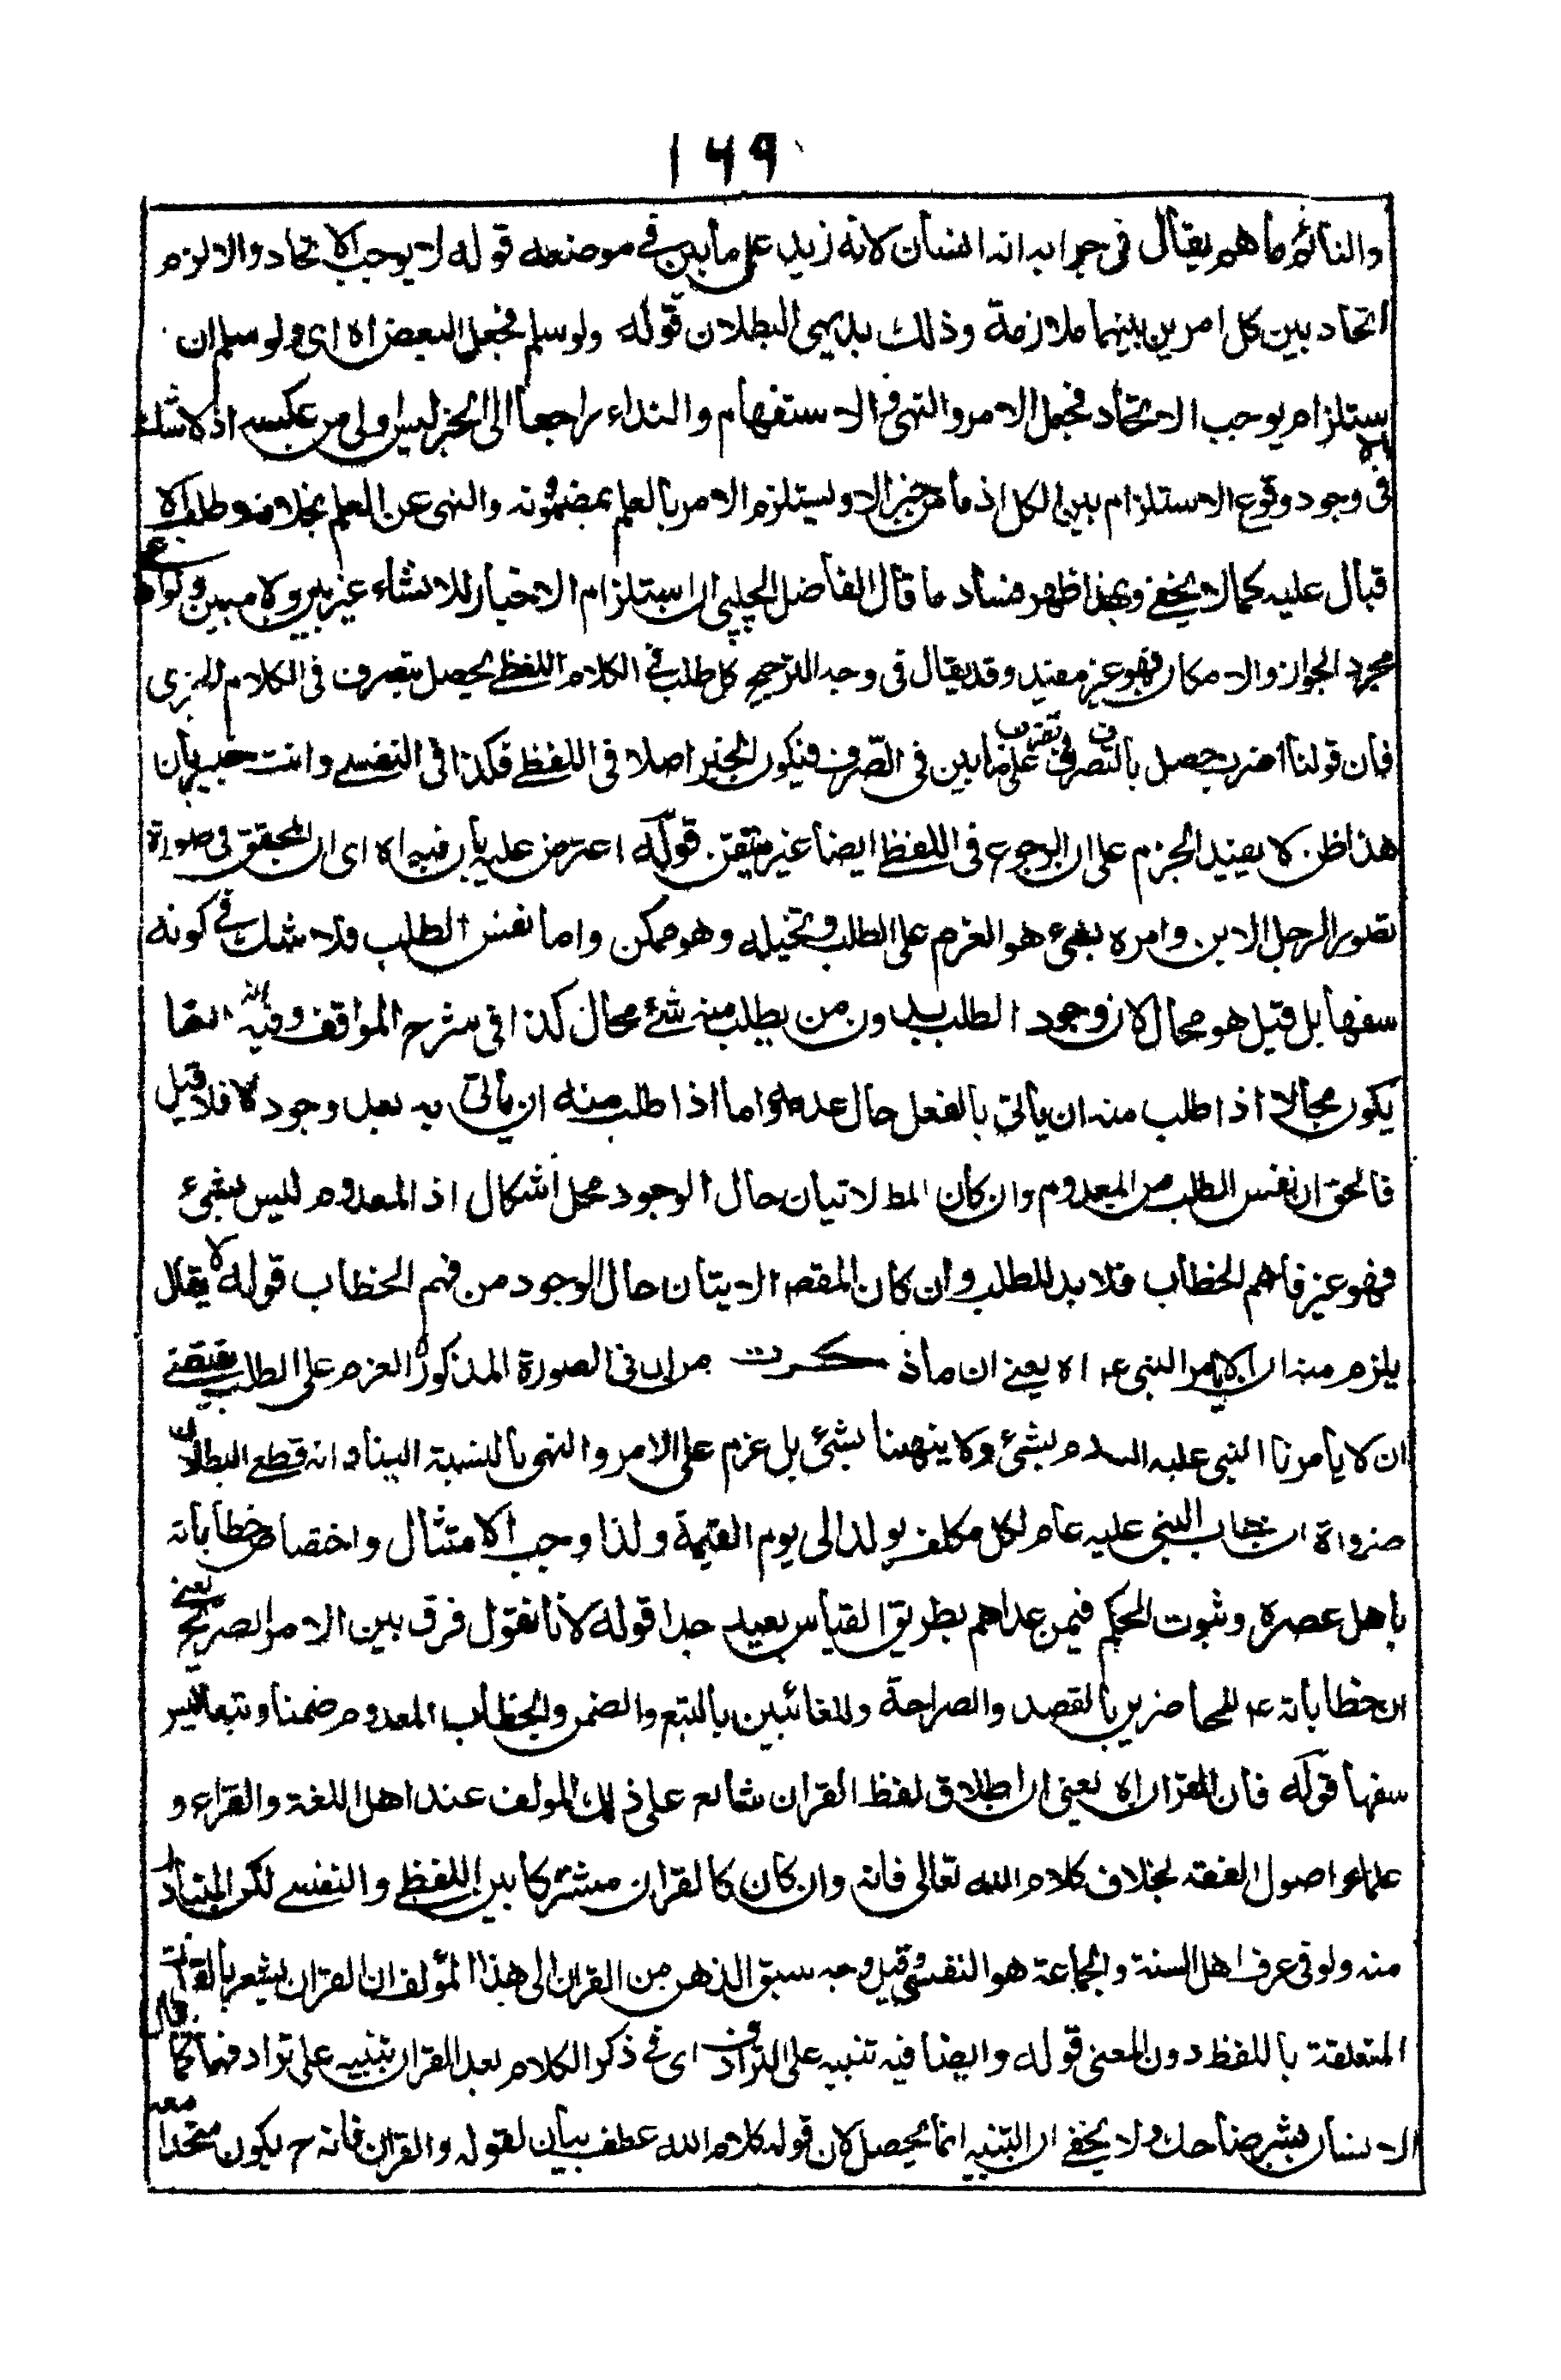 ١٦٩
والنائم ما هم يقال في جوابه انه انسان لانه زيد على ما بين في موضعه قوله لا يوجب الاتحاد والا لزم
اتحاد بين كل امرين بينهما ملازمة وذلك بديهي البطلان قوله ولو سلم فجعل البعض اه اي ولو سلم ان
الاستلزام يوجب الاتحاد فجعل الامر والنهي والاستفهام والنداء راجعا الى الخبر ليس اولى من عكسه اذ لا شك
في وجود وقوع الاستلزام بين الكل اذ ما من خبر الا ويستلزم الامر بالعلم بمضمونه والنهي عن العلم بخلافه وطلب الا
قبال عليه كما لا يخفى وبهذا ظهر فساد ما قال الفاضل الچلپي ان استلزام الاخبار للانشاء غير بين ولا مبين ولو اد
مجرد الجواز والامكان فهو غير مفيد وقد يقال في وجه الترجيح كل طلب في الكلام اللفظي يحصل بتصرف في الكلام الخبري
فان قولنا اضرب حصل بالتصرف في تضرب على ما بين في الصرف فيكون الخبر اصلا في اللفظي فكذا في النفسي وانت خبير بان
هذا ظن لا يفيد الجزم على ان الرجوع في اللفظ ايضا غير متيقن قوله اعترض عليه بان فيه اه اي ان المحقق في صورة
تصور الرجل الابن وامره بشيء هو العزم على الطلب وتخيله وهو ممكن واما نفس الطلب فلا شك في كونه
سفها بل قيل هو محال لان وجود الطلب بدون من يطلب منه شئ محال كذا في شرح المواقف وفيه انه انما
يكون محالا اذا طلب منه ان يأتى بالفعل حال عدمه واما اذا طلب منه ان يأتى به بعد وجوده فلا قيل
فالحق ان نفس الطلب من المعدوم وان كان المط الاتيان حال الوجود محل اشكال اذ المعدوم ليس بشيء
فهو غير فاهم الخطاب فلا بد للطلب وان كان المقصد الايتان حال الوجود من فهم الخطاب قوله لا يقال
يلزم منه ان لا يأمر النبي عه اه يعني ان ما ذكرت من ان في الصورة المذكورة العزم على الطلب يقتضي
ان لا يأمرنا النبي عليه السلام بشئ ولا ينهينا بشئ بل عزم على الامر والنهي بالنسبة الينا وانه قطعي البطلان
ضرورة ان خطاب النبي عليه عام لكل مكلف يولد الى يوم القيمة ولذا وجب الامتثال واختصاص خطاباته
باهل عصره وثبوت الحكم فيمن عداهم بطريق القياس بعيد جدا قوله لانا نقول فرق بين الامر الصريح يعني
ان خطاباته عه للحاضرين بالقصد والصراحة وللغائبين بالتبع والضمن والخطاب المعدوم ضمنا وتبعا ليس
سفها قوله فان القران اه يعني ان اطلاق لفظ القران شائع على ذلك المولف عند اهل اللغة والقراء و
علماء اصول الفقه بخلاف كلام الله تعالى فانه وان كان كالقران مشتركا بين اللفظي والنفسي لكن المتبادر
منه ولو في عرف اهل السنة والجماعة هو النفسي قيل وجه سبق الذهن من القران الى هذا المؤلف ان القران يشعر بالقرأت
المتعلقة باللفظ دون المعنى قوله وايضا فيه تنبيه على الترادف اي في ذكر الكلام بعد القران تنبيه على ترادفهما كما يقال
الانسان بشر ضاحك ولا يخفى ان التنبيه انما يحصل لان قوله كلام الله عطف بيان لقوله والقران فانه ح يكون متحدا معه